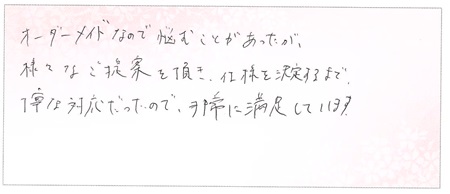 オーダーメイドなので悩むことがあったが、
様々なご提案を頂き、仕様を決定するまで、
丁寧な対応だったので、非常に満足しています!